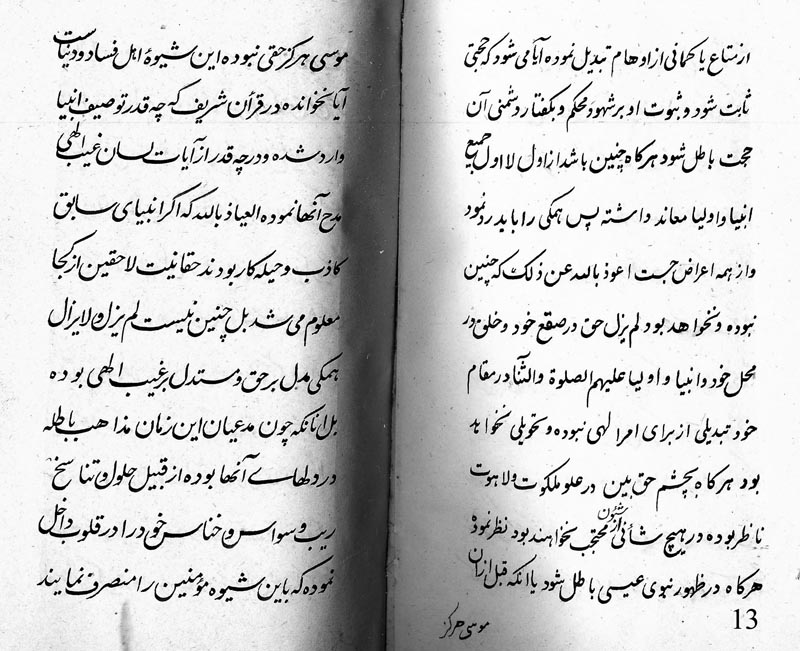 از متاع یا کمانی از اوهام تبدیل نموده آیا می شود که حجتی
ثابت شود و ثبوت او بر شهود محکم و بکفتار دشمنی آن
حجت باطل شود هرکاه چنین باشد از اول لا اول جمیع
انبیا و اولیا معاند داشته پس همکی را باید رد نمود
و از همه اعراض جست اعوذ بالله عن ذلک که چنین
نبوده و نخواهد بود لم یزل حق در صقع خود و خلق در
محل خود و انبیا و اولیا علیهم الصلوة والثنآ در مقام
خود تبدیلی از برای امر الهی نبوده و تحویلی نخواهد
بود هرکاه بچشم حق بین در علو ملکوت ولاهوت
ناظر بوده در هیچ شأنی از شئون محتجب نخواهند بود نظر نموده
هرکاه در ظهور نبوی عیسی باطل شود یا انکه قبل از ان
موسی هرکز
13
موسی هرکز حقی نبوده این شیوهٔ اهل فساد و دنیاست
آیا نخوانده در قرآن شریف که چه قدر توصیف انبیا
وارد شده و در چه قدر از آیات لسان غیب الهی
مدح آنها نموده العیاذ بالله که اکر انبیای سابق
کاذب و حیله کار بودند حقانیت لاحقین از کجا
معلوم می شد بل چنین نیست لم یزل و لا یزال
همکی مدل بر حق و مستدل بر غیب الهی بوده
بل انانکه چون مدعیان این زمان مذاهب باطله
در دلهای آنها بوده از قبیل حلول و تناسخ
ریب و وسواس و خناس خود را در قلوب داخل
نموده که باین شیوه مؤمنین را منصرف نمایند